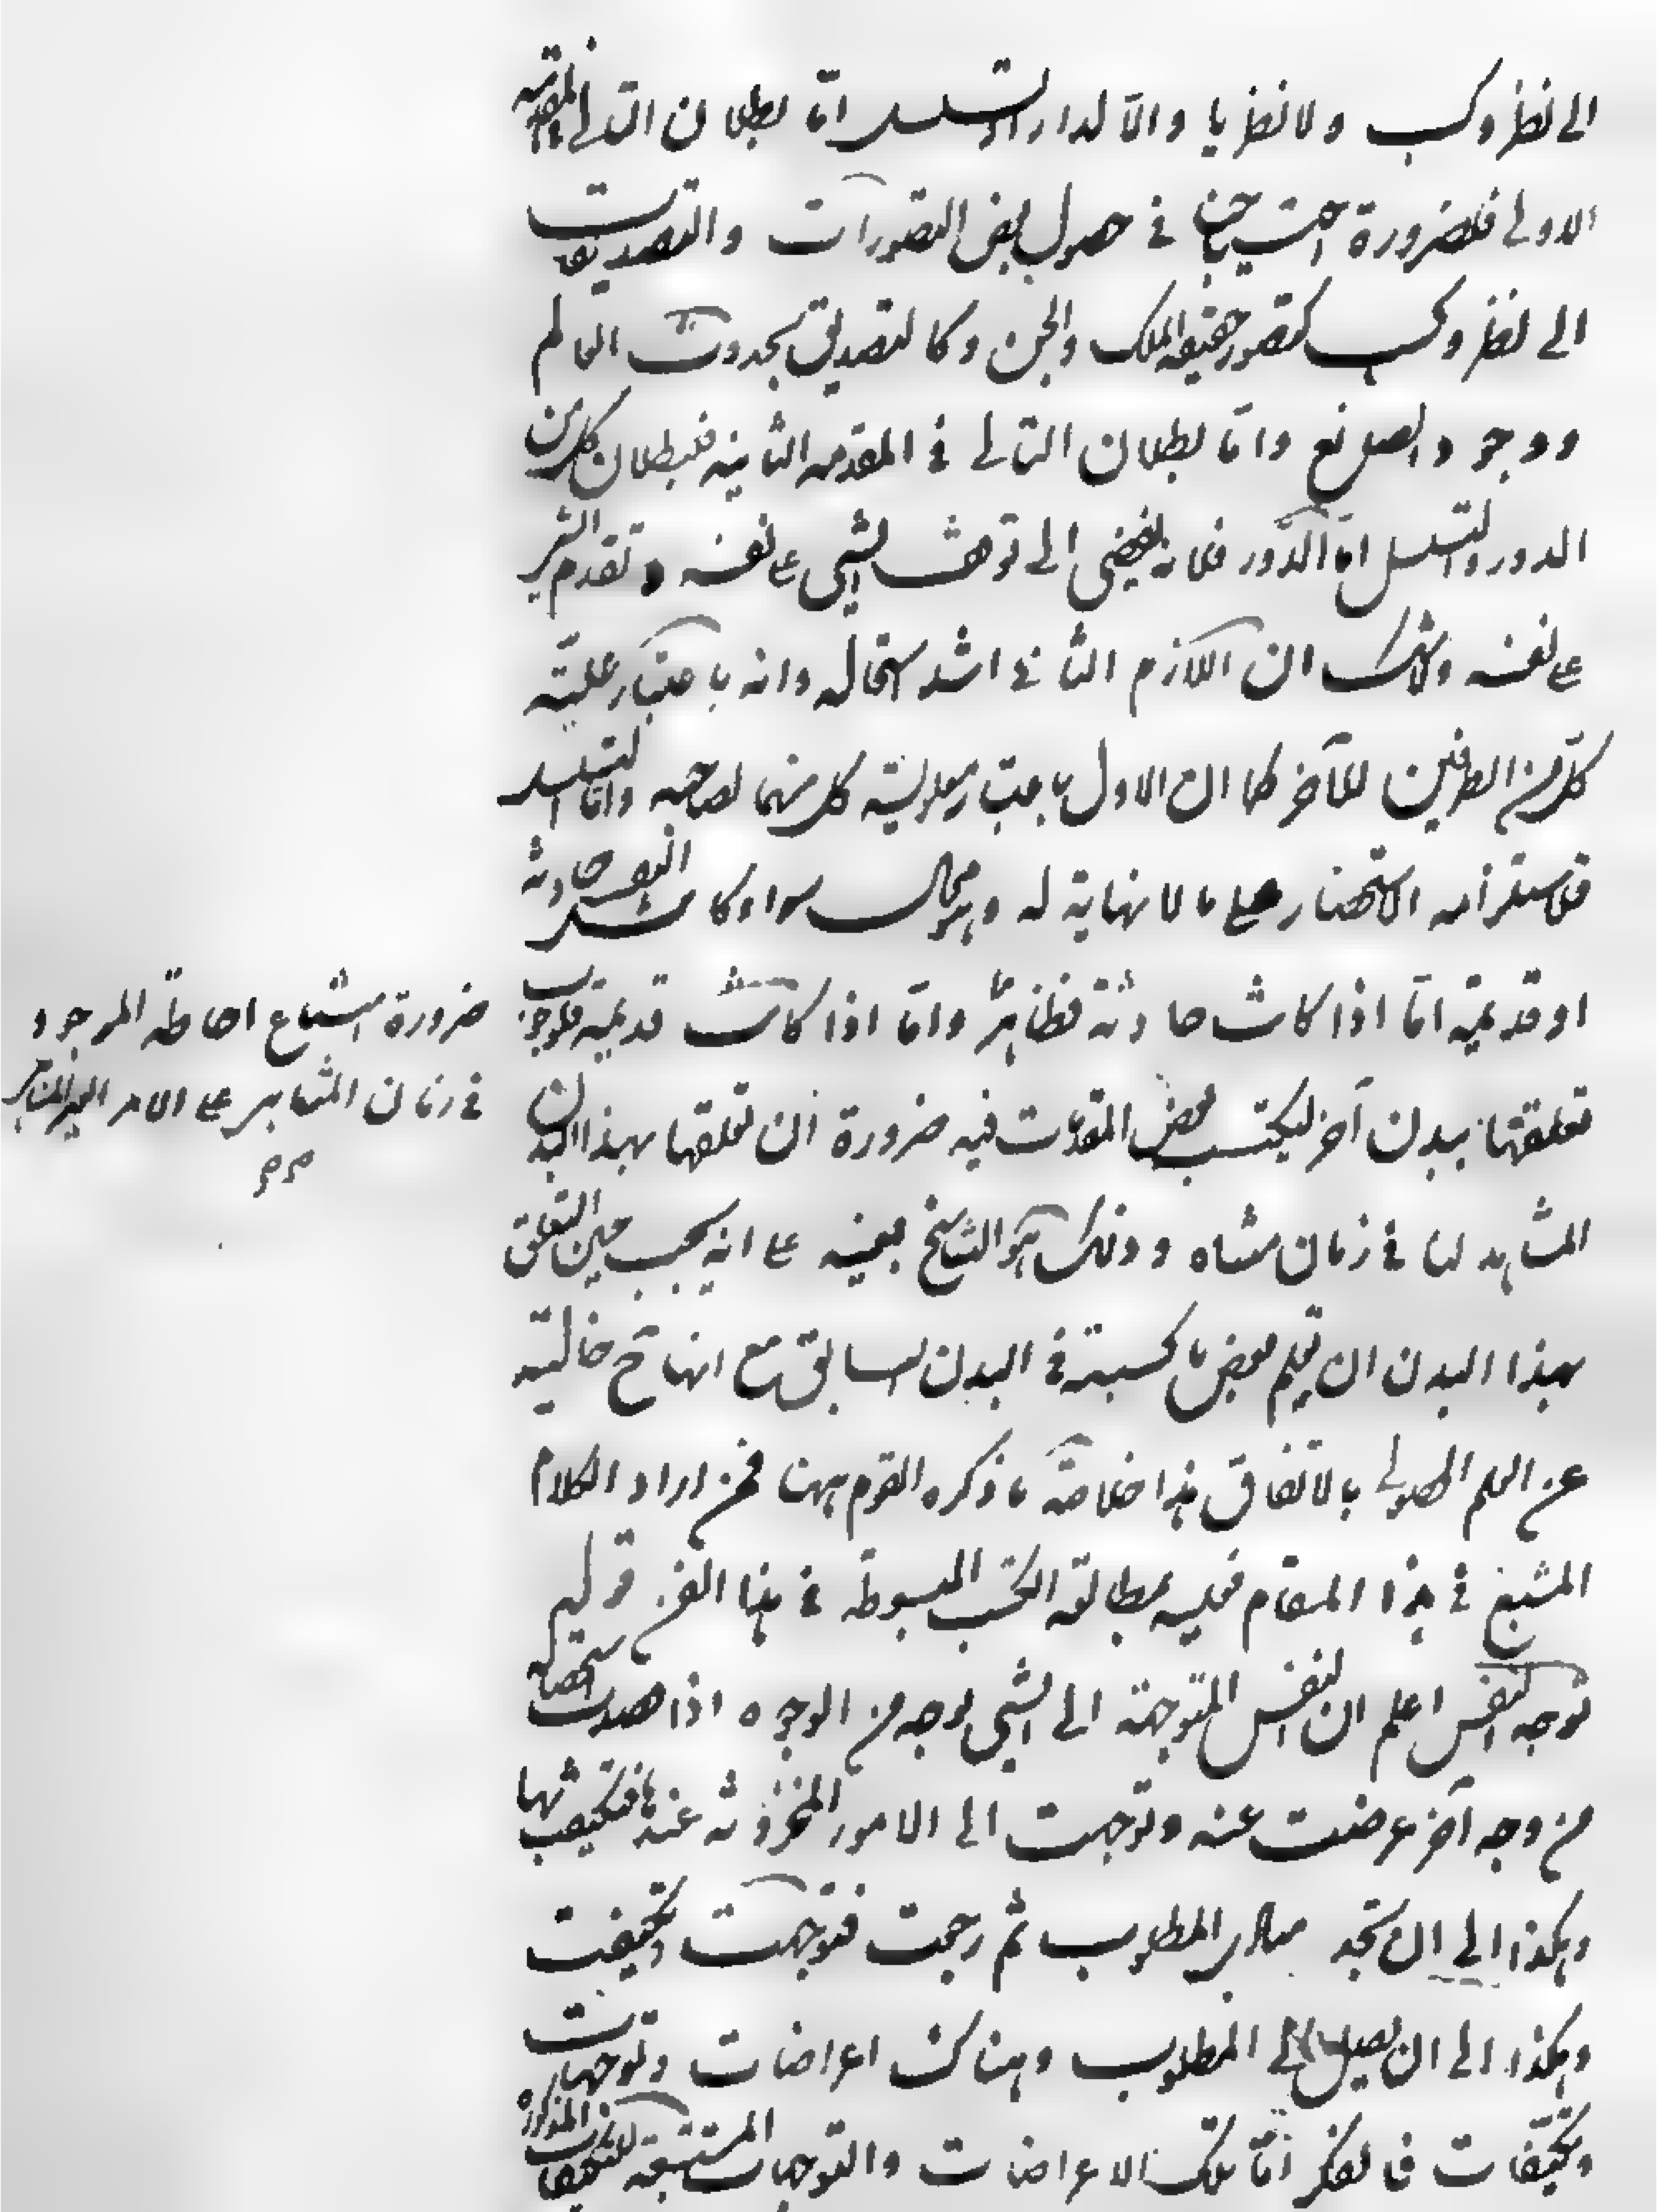 الى نظر وكسب ولا نظريا والا لدار او تسلسل اما بطلان التالى فى المقدمة
الاولى فلضرورة احتياجنا فى حصول بعض التصورات والتصديقات
الى نظر وكسب كتصور حقيقة الملك والجن وكالتصديق بحدوث العالم
ووجود الصانع واما بطلان التالى فى المقدمه الثانية فلبطلان كل من
الدور والتسلسل اما الدور فلانه يفضى الى توقف الشىء على نفسه وتقدم الشىء
على نفسه ولا شك ان اللازم الثانى اشد استحاله وانه باعتبار علية
كل من الطرفين للآخر كما ان الاول باعتبار معلولية كل منهما لصاحبه واما التسلسل
فلاستلزامه الاستحضار على ما لا نهاية له وهو محال سواء كانت النفس حادثة
او قديمة اما اذا كانت حادثة فظاهر واما اذا كانت قديمة فلوجوب
ضرورة امتناع احاطة الموجود
فى زمان المتناهى على الامر الغير المتناهى
تعلقها ببدن آخر ليكتسب بعض المقدمات فيه ضرورة ان تعلقها بهذا البدن
المشاهد لنا فى زمان متناه وذلك هو التناسخ بعينه على انه يجب حين التعلق
بهذا البدن ان يعلم بعض ما كسبته فى البدن السابق مع انها ح خالية
عن العلم الحصولى بالاتفاق هذا خلاصة ما ذكره القوم ههنا فمن اراد الكلام
المشبع فى هذا المقام فعليه بمطالعة الكتب المبسوطة فى هذا الفن قوله
توجه النفس اعلم ان النفس المتوجهة الى الشىء بوجه من الوجوه اذا قصدت تحصيله
من وجه آخر عرضت عنه وتوجهت الى الامور المخزونة عندها فتكيفت بها
وهكذا الى ان تجد مبادى المطلوب ثم رجعت فتوجهت وتكيفت
وهكذا الى ان يصل الى المطلوب وهناك اعراضات وتوجهات
وتكيفات فالفكر اما تلك الاعراضات والتوجهات المستتبعة للتكيفات المذكورة